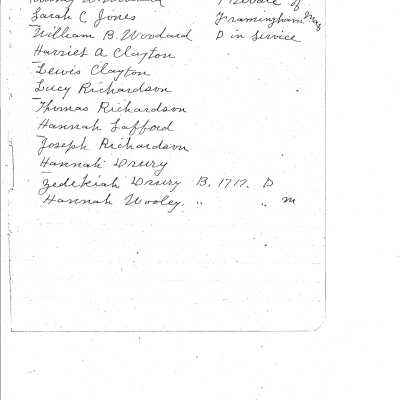 Sarah C Jones Framingham Mass
William B. Woodard D in Service
Harriet A Clayton
Lewis Clayton
Lucy Richardson
Thomas Richardson
Hannah Safford
Joseph Richardson
Hannah Drury
Zedekiah Drury B. 1717. D
Hannah Wooley. " " m